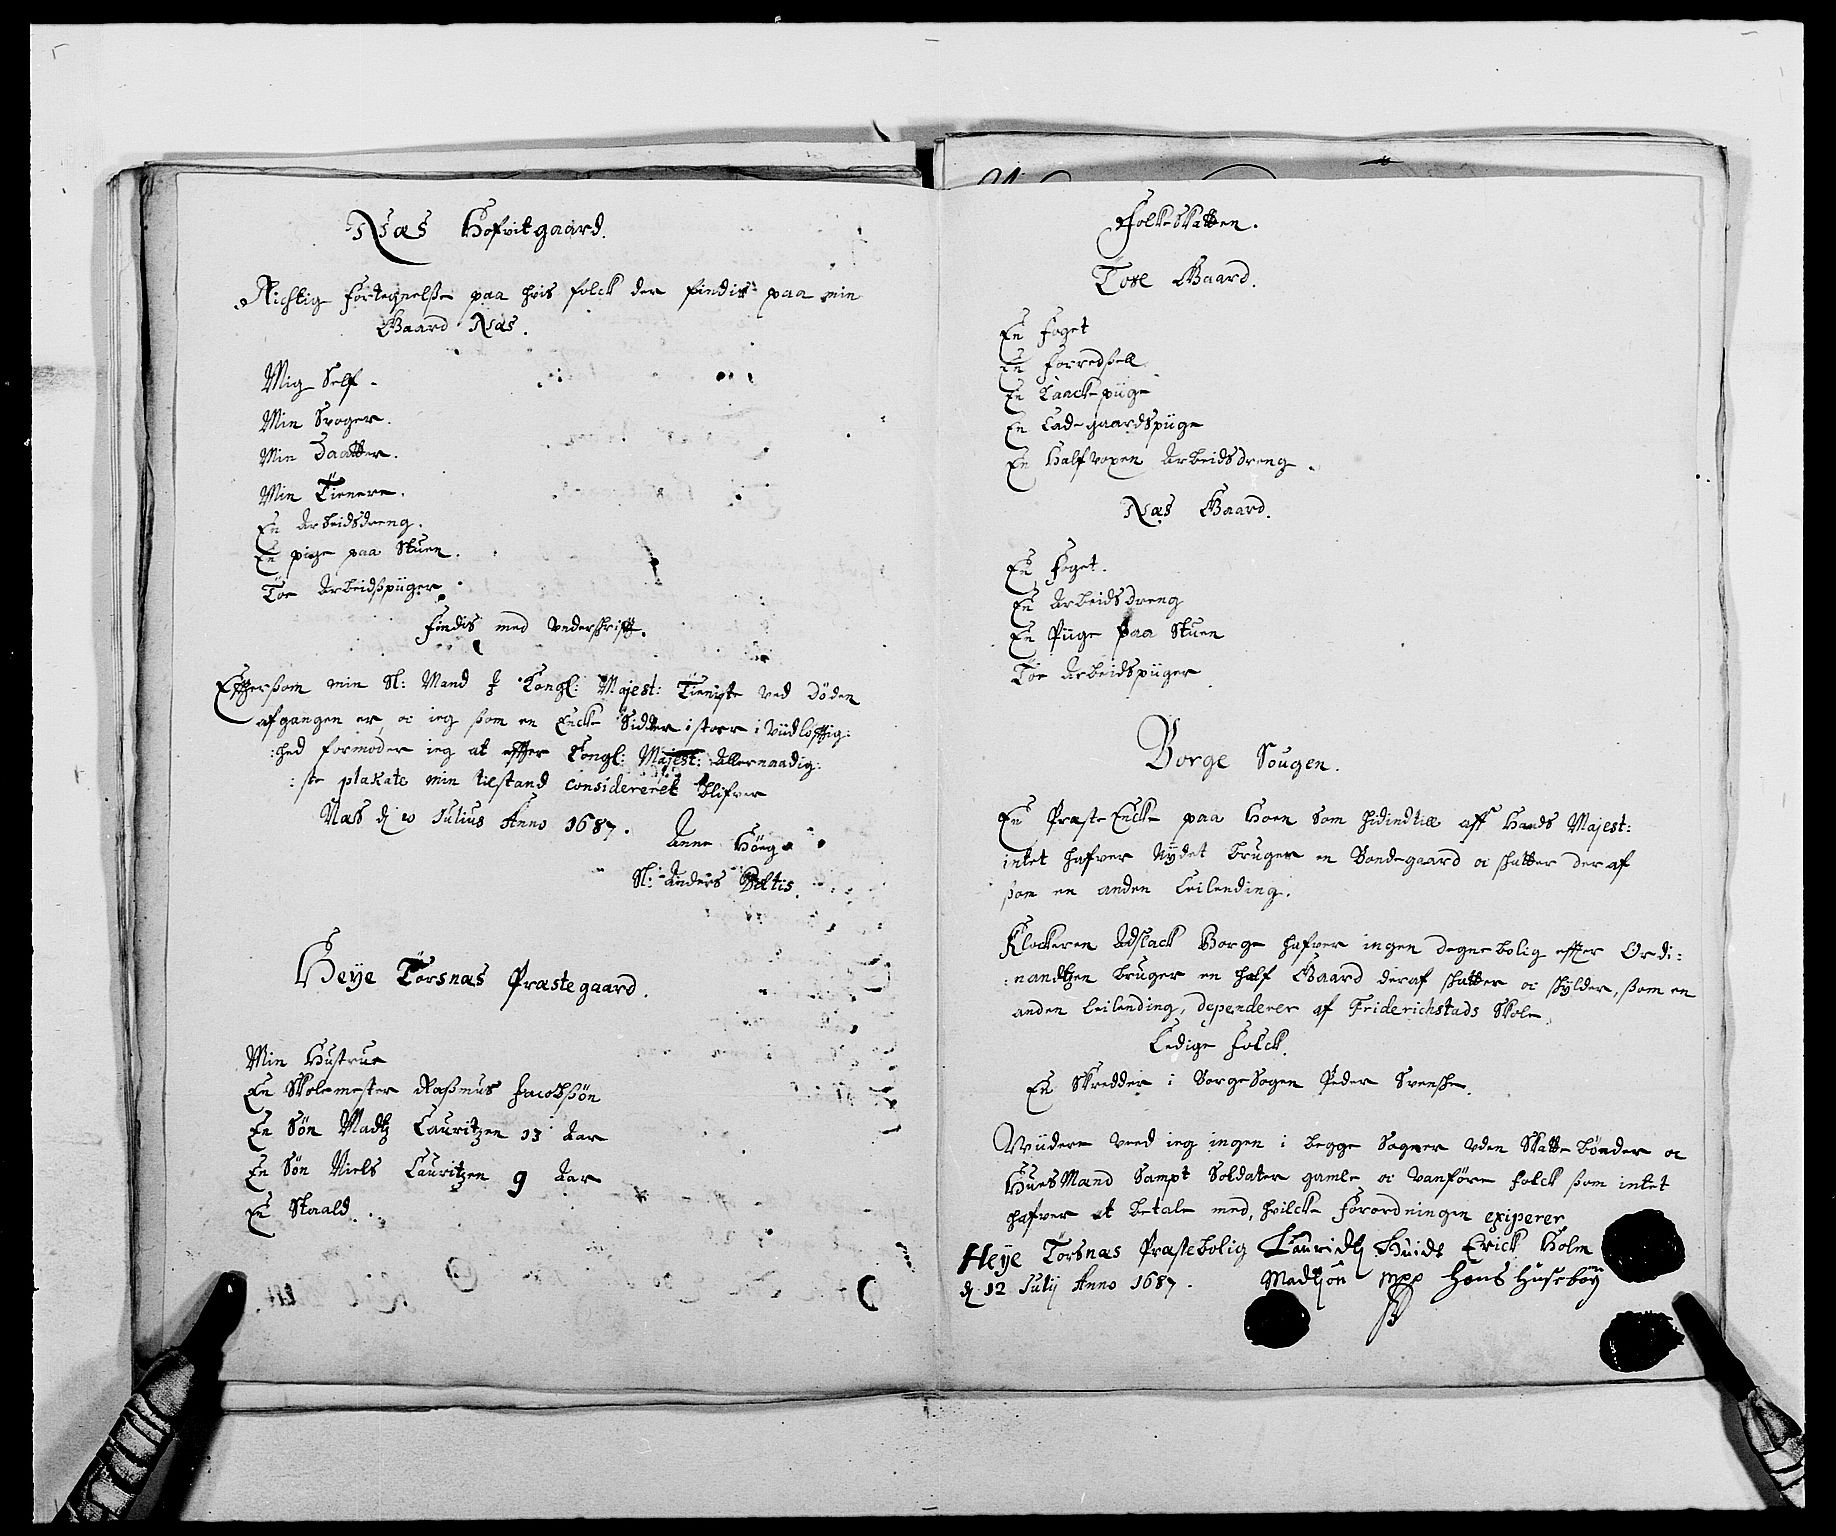 Næs Hofvitgaard.
Richtig Fortegnelße paa hvis folck der findis paa min
Gaard Næs.
Mig Self.
Min Svoger.
Min Daatter.
Min Tienere.
En Arbeidsdreng.
En pige paa Stuen.
Toe Arbeidspiiger.
Findis med Underschrifft.
Effterßom min Sl: Mand J Kongl: Majest: Tieniste ved Døden
afgangen er, oc ieg ßom en Encke Sidder i stoer i Viidløfftig:
:hed formoder ieg at effter Kongl: Majest: Allernaadig:
:ste plakate min tilstand considereret blifver
Næs d 10 Julius Anno 1687.
Anne Høeg
Sl: Anders
Heÿe Torsnæs Præstegaard.
Min Hustrue
En Skolemester Raßmus Jacobßøn
En Søn Madtz Lauritzen 13 Aar
En Søn Niels Lauritzen 9 Aar
En Staald
Folkeskatten.
Tose Gaard.
En Foget
En
En piige
En Ladegaardspiige
En Halfvoxen Arbeidsdreng.
Næs Gaard.
En Foget.
En Arbeidsdreng
En Piige paa Stuen
Toe Arbeidspiiger
Borge Sougen.
En Præste Encke paa Hoen Som hidindtil aff Hands Majest:
intet hafver Nydet bruger en Bondegaard oc skatter deraf
ßom en anden Leilending.
Klockeren Adslack Borge hafver ingen degnebolig effter Ordi:
:nandtzen bruger en half Gaard deraf skatter oc skylder, ßom en
anden Leilending, dependerer af Friderichstads Skole,
Ledige Folck.
En Skredder i Borge Sogen Peder Svenske.
Viidere veed ieg ingen i begge Sogner uden Skattebønder oc
HuesMænd Sampt Soldater gamle oc vanføre folck ßom intet
hafver at betale med, hvilcke Forordningen exiperer
Heÿe Torsnæs Præstebolig Lauridtz Huids Erick Holm
d 12 Julij Anno 1687. Madtzøn mpp Hans Husebøÿ